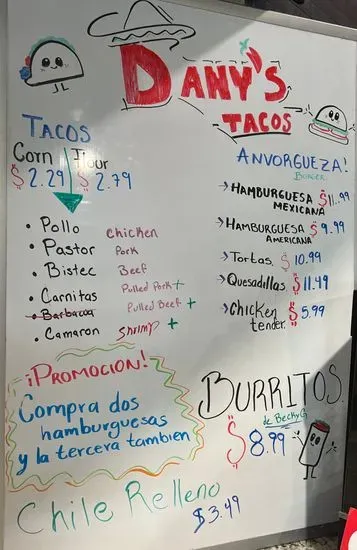 DANY'S
TACOS
TACOS
Corn Flour
$ 2.29 $ 2.79
• Pollo chicken
• Pastor Pork
• Bistec Beef
• Carnitas Pulled Pork +
• Barbacoa Pulled Beef +
• Camaron Shrimp +
ANVORGUEZA!
BURGER
→ HAMBURGUESA $11.99
MEXICANA
→ HAMBURGUESA $9.99
AMERICANA
→ Tortas. $ 10.99
→ Quesadillas. $ 11.49
→ Chicken $ 5.99
tender.
¡PROMOCION!
Compra dos
hamburguesas
y la tercera tambien
BURRITOS.
de Becky G
$ 8.99
Chile Relleno
$ 3.49